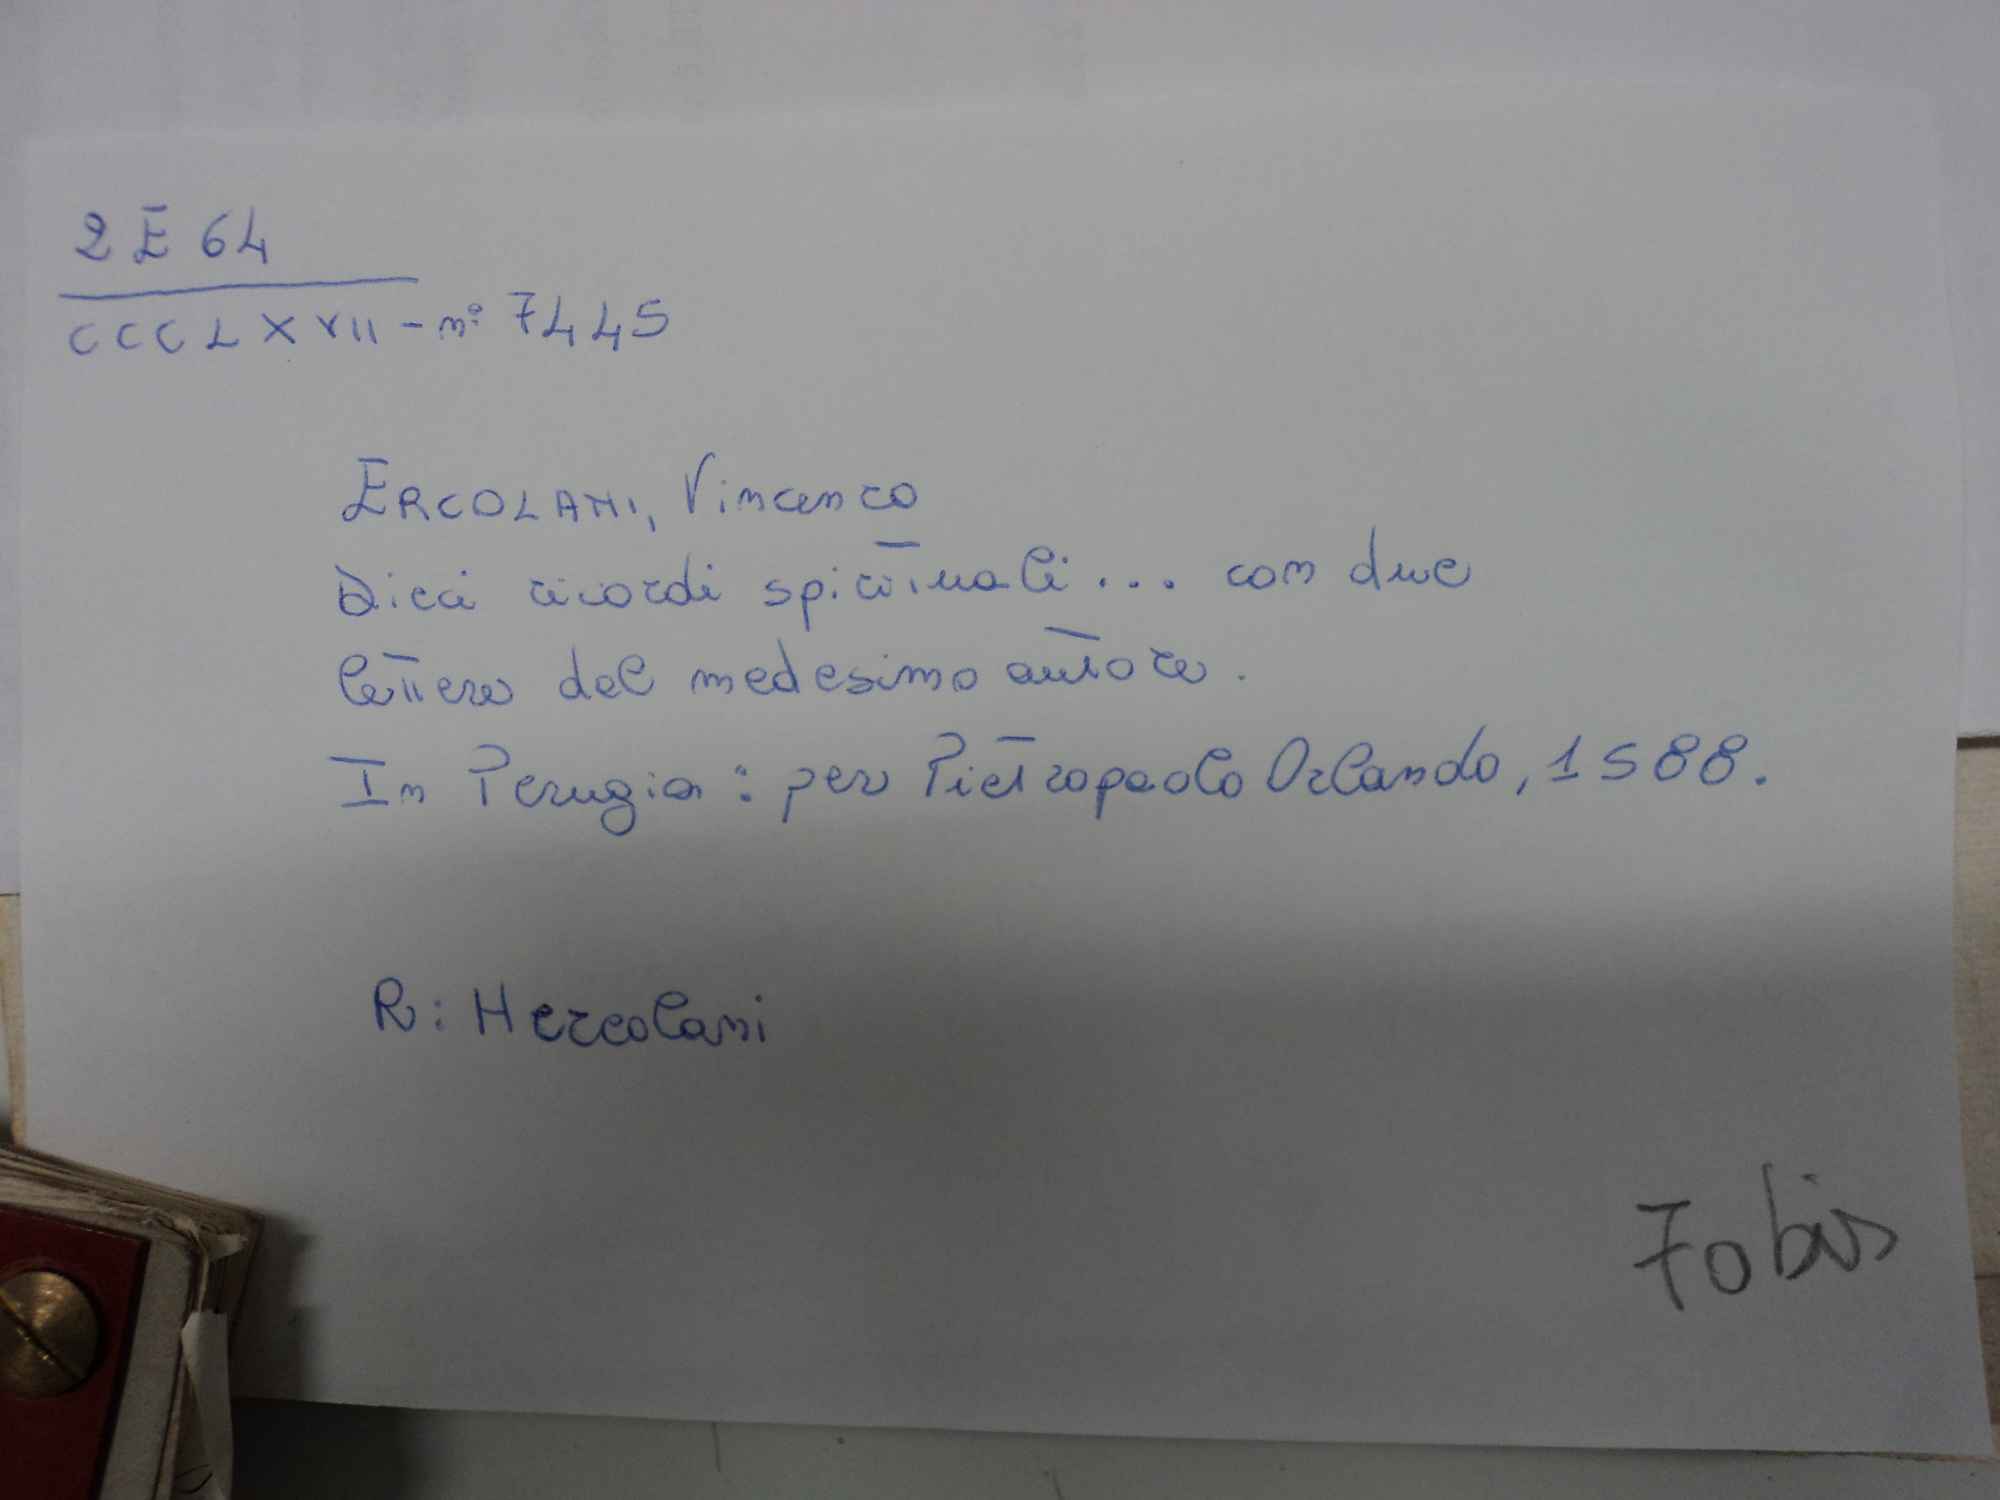 2 E 64
CCCLXVII - n° 7445
ERCOLANI, Vincenzo
Dieci ricordi spirituali... con due
lettere del medesimo autore.
In Perugia : per Pietropaolo Orlando, 1588.
R: Hercolani
70bis